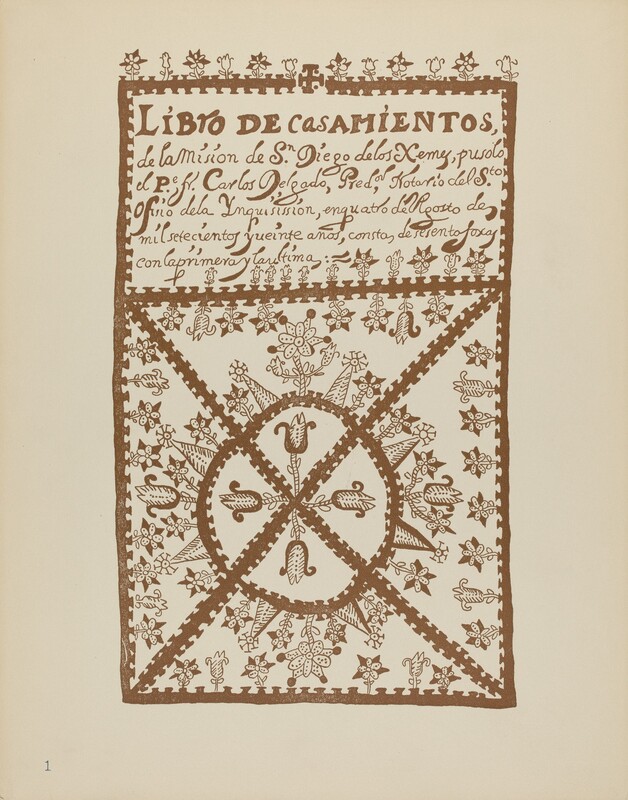 LiBro DE CasAMIENTOS,
de la Mision de S.n Diego de los Xemes, pusolo
el P.e fr. Carlos Delgado, Pred.or Notario del S.to
Ofisio de la Ynquisision, en quatro de Agosto de
mil setecientos y veinte años, consta de sesenta foxas
con la primera y la ultima,
1